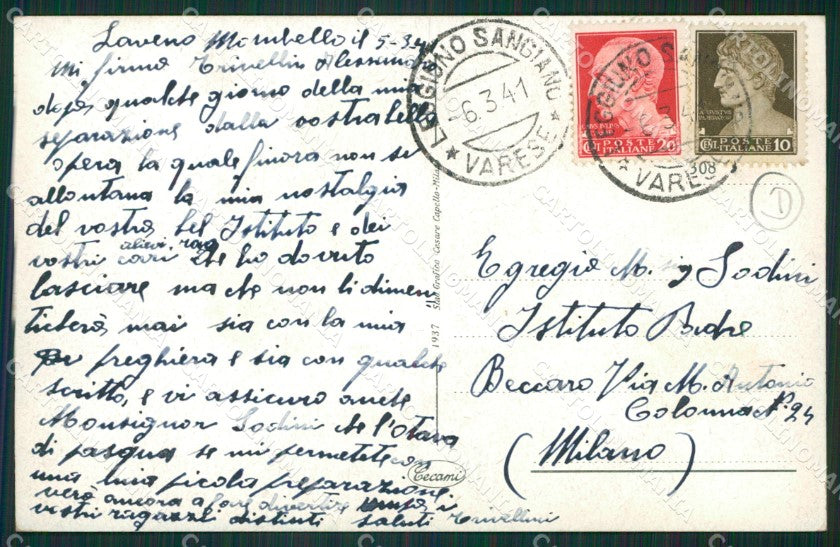 Laveno Mombello il 5-3-41
Mi firmo Trivellin Alessandro
dopo qualche giorno della mia
separazione dalla vostra bella
opera la quale finora non se
allontana la mia nostalgia
del vostro bel Istituto e dei
alievi, rag
vostri cari che ho dovuto
lasciare ma che non li dimen
ticherò mai sia con la mia
preghiera e sia con qualche
scritto, e vi assicuro anche
Monsignor Sodini che l'otava
di pasqua se mi permetete con
una mia picola preparazione
verò ancora a fare divertire i
vostri ragazzi distinti saluti Trivellini
LEGGIUNO SANGIANO
6.3.41
* VARESE *
POSTE ITALIANE
CENT. 20
POSTE ITALIANE
CENT. 10
LEGGIUNO SANGIANO
* VARESE
308
D
Egregio M. Sodini
Istituto Padre
Beccaro Via M. Antonio
Colonna N° 24
(Milano)
1937 Stab. Grafico Cesare Capello - Milano
Cecami
CARTOLINOMANIA